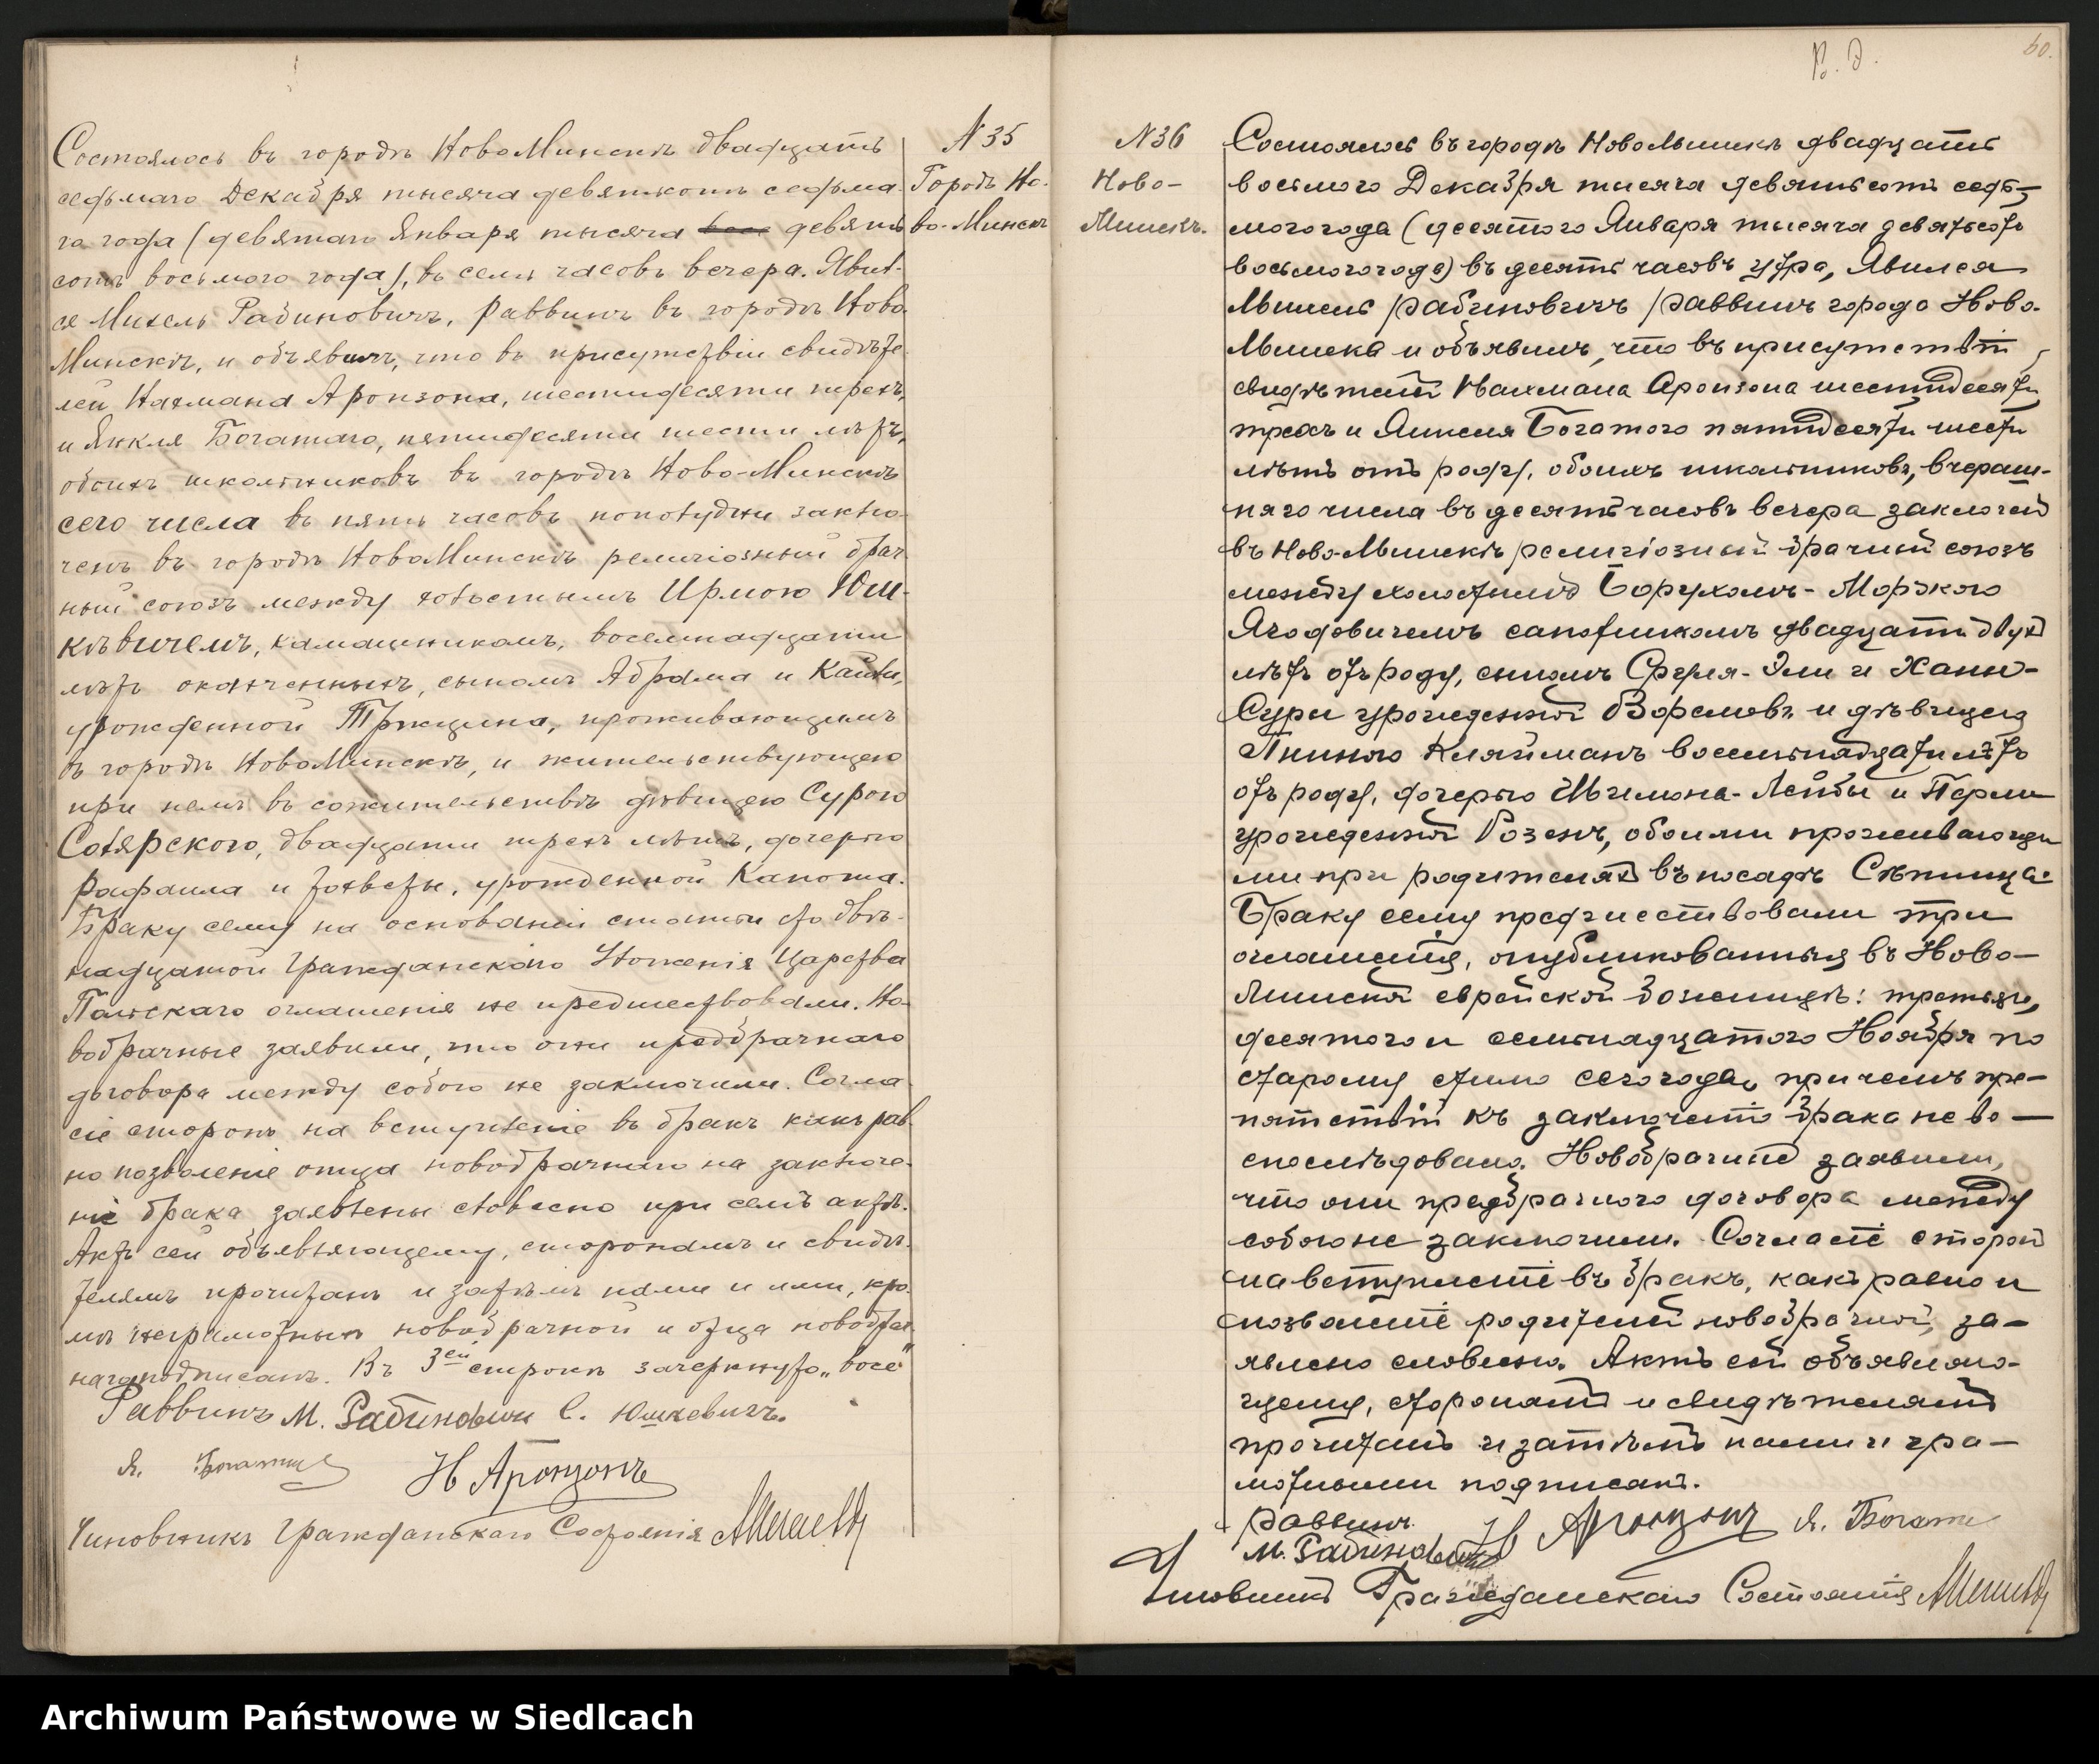 Состоялось въ городѣ НовоМинскѣ двадцать
седьмаго Декабря тысяча девятьсотъ седьма-
го года (девятаго Января тысяча девять
сотъ восьмого года), въ семь часовъ вечера. Явил-
ся Михель Рабиновичъ, раввинъ въ городѣ Ново
Минскѣ, и объявилъ, что въ присутствіи свидѣте-
лей Нахмана Аронзона, шестидесяти трехъ,
и Янкля Богатаго, пятидесяти шести лѣтъ,
обоихъ школьниковъ въ городѣ Ново-Минскѣ
сего числа въ пять часовъ пополудни заклю-
ченъ въ городѣ НовоМинскѣ религіозный брач-
ный союзъ между холостымъ Ирмою Юш-
кѣвичемъ, камашникомъ, восемнадцати
лѣтъ оконченныхъ, сыномъ Абрама и Кайли,
урожденной Тржцина, проживающимъ
въ городѣ НовоМинскѣ, и жительствующею
при немъ въ сожительствѣ дѣвицею Сурою
Солярскою, двадцати трехъ лѣтъ, дочерью
Рафаила и уротденной Капота.
Браку сему на основаніи статьи сто двѣ-
надцатой Гражданскаго Уложенія Царства
Польскаго оглашенія не предшествовали. Но-
вобрачные заявили, что они предбрачнаго
договора между собою не заключили. Согла-
сіе сторонъ на вступленіе въ бракъ какъ рав-
но позволеніе отца новобрачнаго на заключе-
ніе брака заявлены словесно при семъ актѣ.
Актъ сей объявляющему, сторонамъ и свидѣ-
телямъ прочитанъ и затѣмъ нами и ими, кро-
мѣ неграмотныхъ новобрачной и отца новобрач-
наго подписанъ. Въ 3ей строкѣ зачеркнуто „восе"
Раввинъ М. Рабиновичъ С. Юшкевичъ.
Я. Богатый Н Аронзонъ
Чиновникъ Гражданскаго Состоянія
N 35
Городъ Но-
во-Минскъ
60.
N 36
Ново-
Минскъ.
Состоялось въ городѣ НовоМинскѣ двадцать
восьмого Декабря тысяча девятьсотъ седь-
мого года (десятого Января тысяча девятьсотъ
восьмого года) въ десять часовъ утра, Явился
Михель Рабиновичъ раввинъ города Ново-
Минска и объявилъ, что въ присутствіи
свидѣтелей Нахмана Аронзона шестидесяти
трехъ и Янкеля Богатого пятидесяти шести
лѣтъ отъ роду, обоихъ школьниковъ, вчераш-
няго числа въ десять часовъ вечера заключенъ
въ Ново-Минскѣ религіозный брачный союзъ
между холостымъ Борухомъ-Мордкою
Ягодовичемъ сапожникомъ двадцати двухъ
лѣтъ отъ роду, сыномъ Сруля-Эли и Ханы-
Суры урожденной Ворфмовъ и дѣвицею
Клайманъ восемнадцати лѣтъ
отъ роду, дочерью Шлиона-Лейбы и Перли
урожденной Розенъ, обоими проживающи
ми при родителяхъ въ посадѣ Сѣнница.
Браку сему предшествовали три
оглашенія, опубликованныя въ Ново-
Минской еврейской божницѣ: третьяго,
десятого и семнадцатого Ноября по
старому стилю сего года, причемъ пре-
пятствій къ заключенію брака не во-
спослѣдовало. Новобрачные заявили,
что они предбрачного договора между
собою не заключили. Согласіе сторонъ
на вступленіе въ бракъ, какъ равно и
позволеніе родителей новобрачной, за-
явлено словесно. Актъ сей объявляю-
щему, сторонамъ и свидѣтелямъ
прочитанъ и затѣмъ нами и гра-
мотными подписанъ.
Раввинъ Н Аронзонъ Я. Богаты
М. Рабиновичъ
Чиновникъ Гражданскаго Состоянія
Archiwum Państwowe w Siedlcach